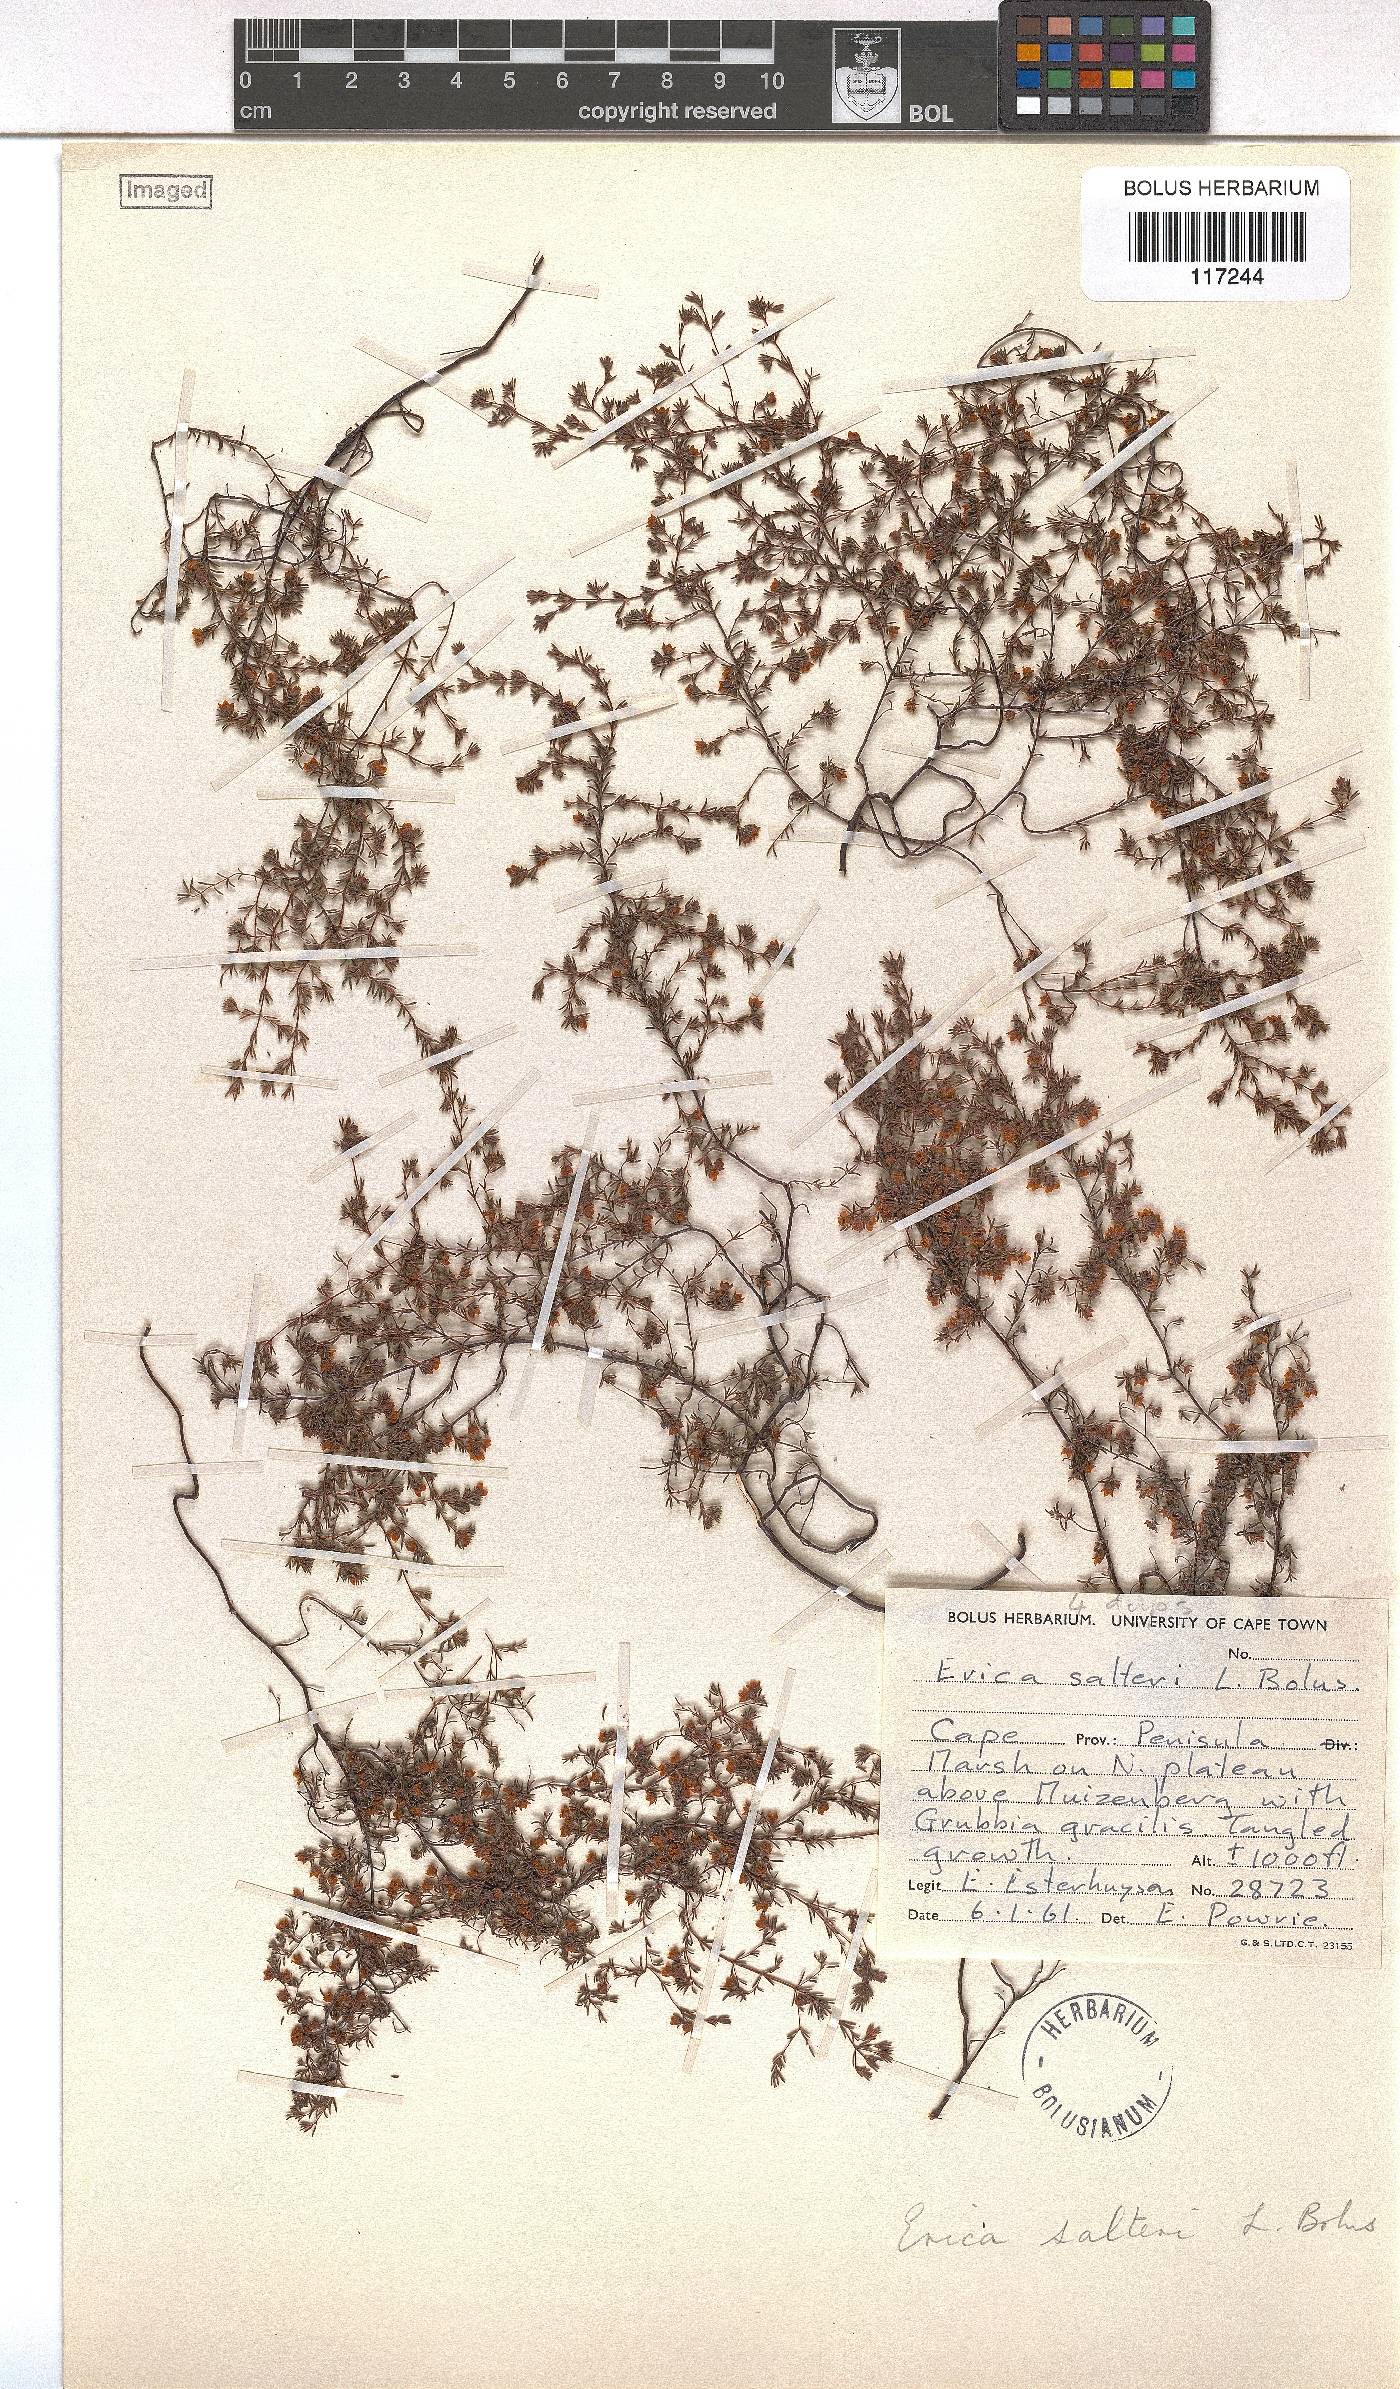 0 1 2 3 4 5 6 7 8 9 10
cm copyright reserved BOL
Imaged
BOLUS HERBARIUM
117244
4 dups
BOLUS HERBARIUM. UNIVERSITY OF CAPE TOWN
No.
Erica salteri L. Bolus.
Cape Prov.: Penisula Div.:
Marsh on N. plateau
above Muizenberg with
Grubbia gracilis. Tangled
growth. Alt. ± 1000ft.
Legit E. Esterhuysen No. 28723
Date 6.1.61 Det. E. Powrie.
G. & S. LTD. C.T. 23155
HERBARIUM
BOLUSIANUM
Erica salteri L. Bolus